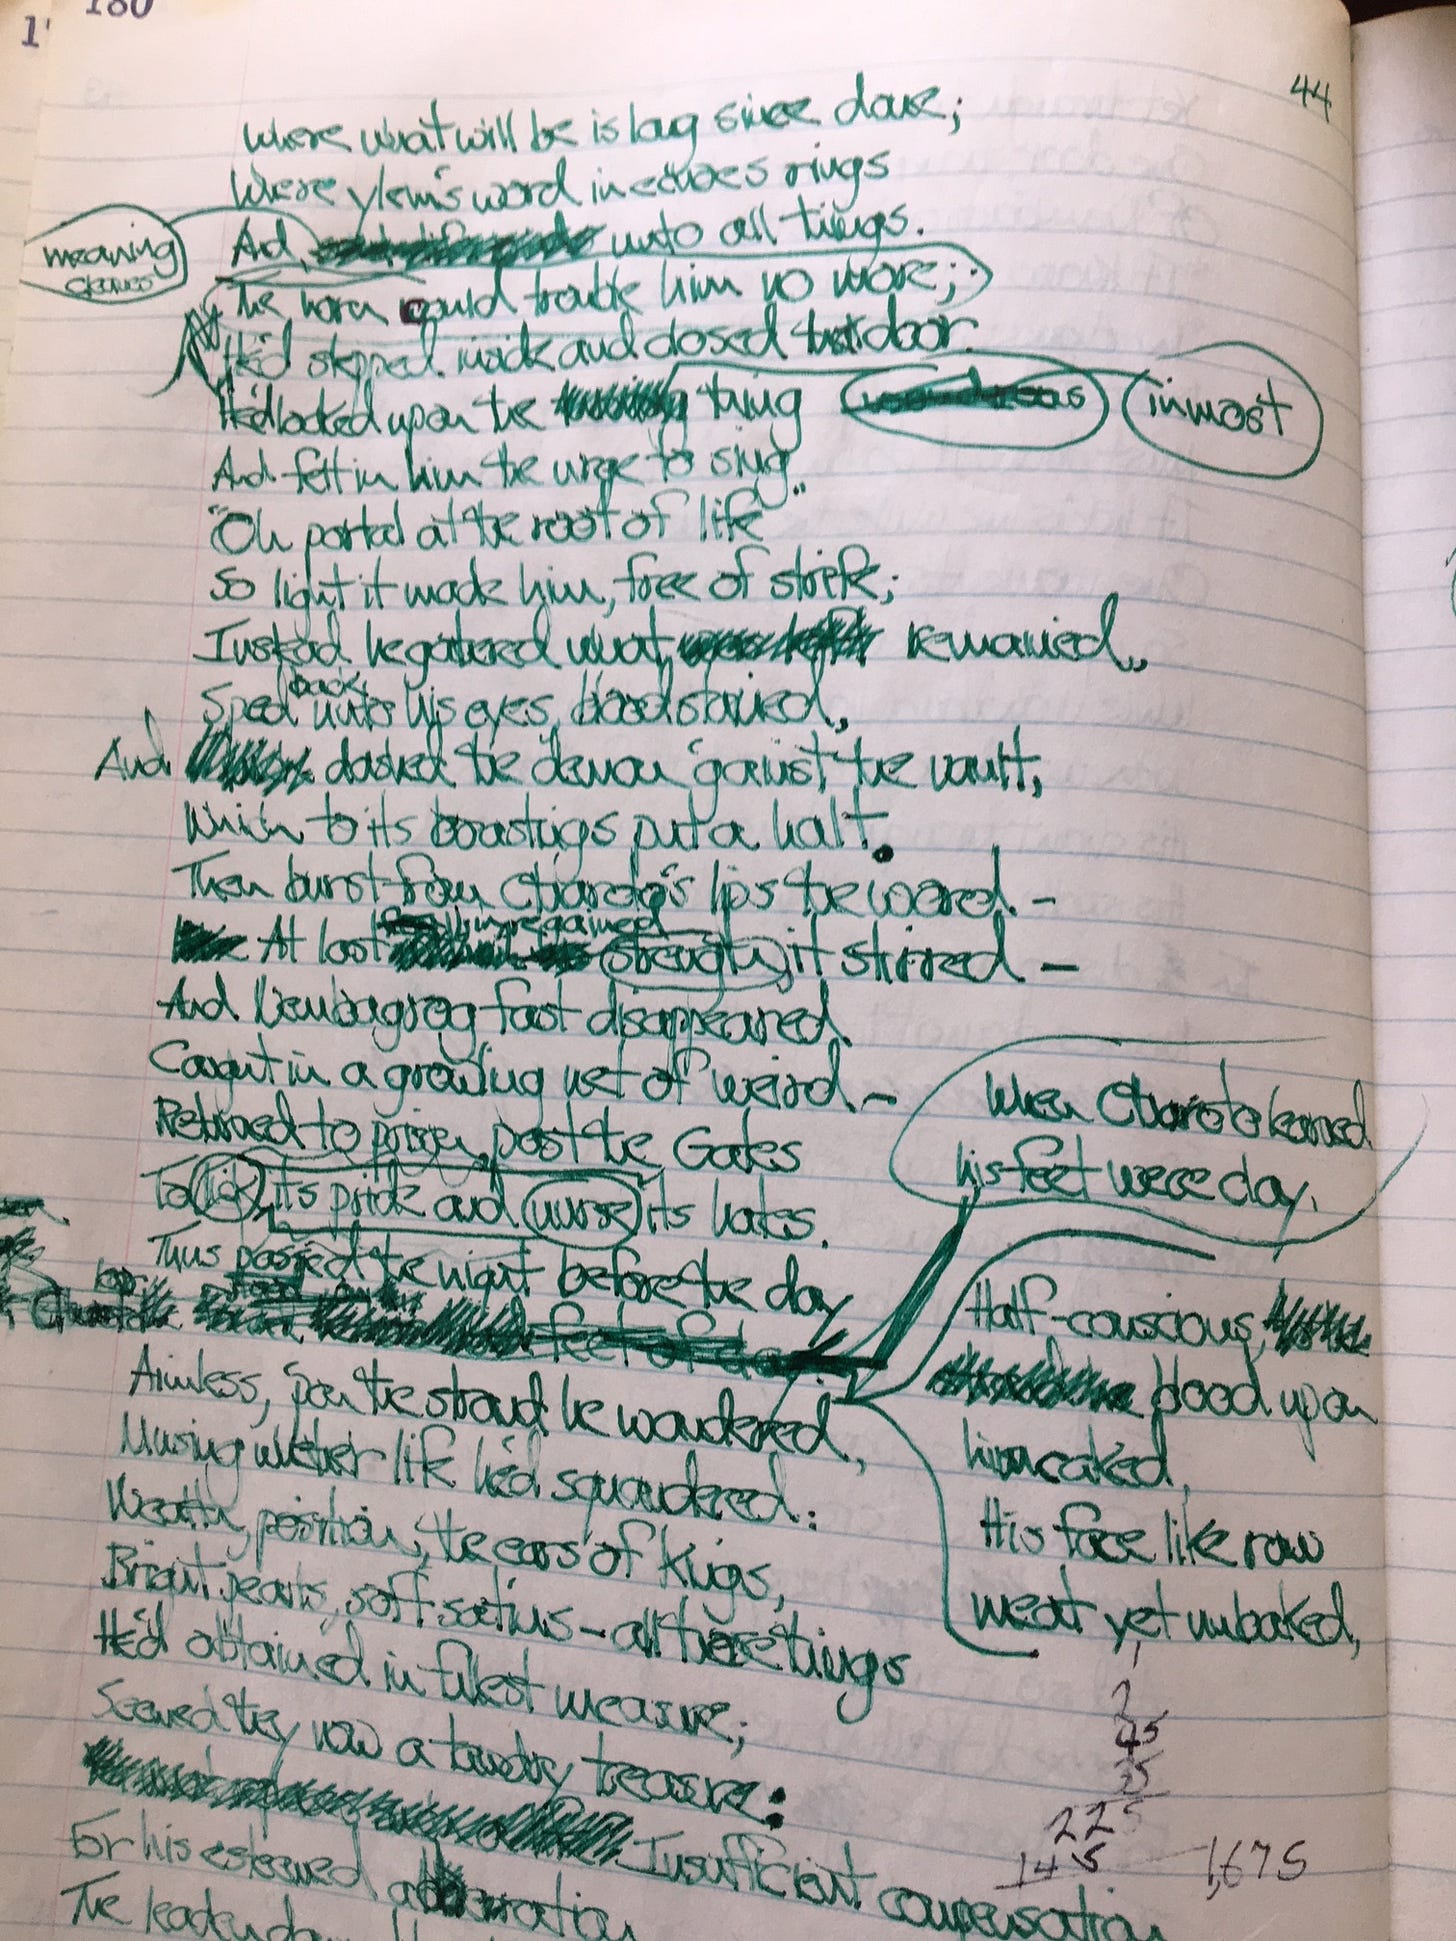 180
44
Where what will be is long since done;
Where ylem's word in echoes rings
meaning
And unto all things.
The horn could trouble him no more;
He'd stepped inside and closed that door.
He'd looked upon the thing
inmost
And felt in him the urge to sing
"Oh portal at the root of life"
So light it made him, free of strife;
Instead he gathered what remained,
Sped back unto his eyes, bloodstained,
And dashed the demon 'gainst the vault,
Which to its boastings put a halt.
Then burst from lips the word –
At last regained strength, it stirred –
And fast disappeared
Caught in a growing net of weird –
Returned to prison, past the Gates
To lick its pride and nurse its hates.
Thus passed the night before the day
When learned
his feet were clay.
Half-conscious,
blood upon
him caked,
His face like raw
meat yet unbaked,
Aimless, 'pon the strand he wandered,
Musing whether life he'd squandered:
Wealth, position, the ears of Kings,
Bright pearls, soft satins – all these things
He'd obtained in fullest measure;
Seemed they now a tawdry treasure:
Insufficient compensation
For his esteemed
The leaden
2
45
35
225
145
1,675